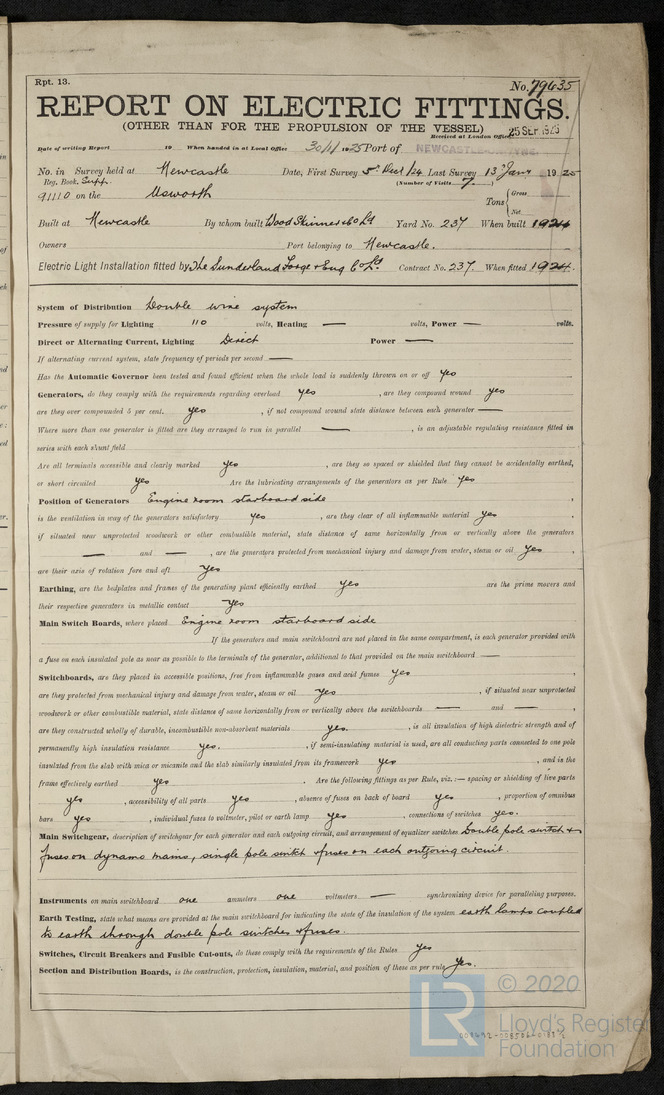 Rpt. 13.
No. 79635
REPORT ON ELECTRIC FITTINGS.
(OTHER THAN FOR THE PROPULSION OF THE VESSEL)
Received at London Office 25 SEP 1925
Date of writing Report 19 When handed in at Local Office 30/1/1925 Port of NEWCASTLE-ON-TYNE.
No. in Survey held at Newcastle Date, First Survey 5th Decr/24 Last Survey 13th Jany 1925
Reg. Book. Supp. (Number of Visits 7)
91110 on the Usworth Tons { Gross
Net
Built at Newcastle By whom built Wood Skinner & Co Ld Yard No. 237 When built 1924
Owners Port belonging to Newcastle.
Electric Light Installation fitted by The Sunderland Forge & Eng Co Ld Contract No. 237. When fitted 1924.
System of Distribution Double wire system
Pressure of supply for Lighting 110 volts, Heating — volts, Power — volts.
Direct or Alternating Current, Lighting Direct Power —
If alternating current system, state frequency of periods per second —
Has the Automatic Governor been tested and found efficient when the whole load is suddenly thrown on or off yes
Generators, do they comply with the requirements regarding overload yes , are they compound wound yes
are they over compounded 5 per cent. yes , if not compound wound state distance between each generator —
Where more than one generator is fitted are they arranged to run in parallel — , is an adjustable regulating resistance fitted in
series with each shunt field
Are all terminals accessible and clearly marked yes , are they so spaced or shielded that they cannot be accidentally earthed,
or short circuited yes Are the lubricating arrangements of the generators as per Rule yes
Position of Generators Engine room starboard side ,
is the ventilation in way of the generators satisfactory yes , are they clear of all inflammable material yes ,
if situated near unprotected woodwork or other combustible material, state distance of same horizontally from or vertically above the generators
— and — , are the generators protected from mechanical injury and damage from water, steam or oil yes ,
are their axis of rotation fore and aft yes
Earthing, are the bedplates and frames of the generating plant efficiently earthed yes are the prime movers and
their respective generators in metallic contact yes
Main Switch Boards, where placed Engine room starboard side
If the generators and main switchboard are not placed in the same compartment, is each generator provided with
a fuse on each insulated pole as near as possible to the terminals of the generator, additional to that provided on the main switchboard —
Switchboards, are they placed in accessible positions, free from inflammable gases and acid fumes yes ,
are they protected from mechanical injury and damage from water, steam or oil yes , if situated near unprotected
woodwork or other combustible material, state distance of same horizontally from or vertically above the switchboards — and — ,
are they constructed wholly of durable, incombustible non-absorbent materials yes. , is all insulation of high dielectric strength and of
permanently high insulation resistance yes. , if semi-insulating material is used, are all conducting parts connected to one pole
insulated from the slab with mica or micanite and the slab similarly insulated from its framework yes , and is the
frame effectively earthed yes . Are the following fittings as per Rule, viz.:— spacing or shielding of live parts
yes , accessibility of all parts yes , absence of fuses on back of board yes , proportion of omnibus
bars yes , individual fuses to voltmeter, pilot or earth lamp yes , connections of switches yes.
Main Switchgear, description of switchgear for each generator and each outgoing circuit, and arrangement of equalizer switches Double pole switch &
fuses on dynamo mains, single pole switch & fuses on each outgoing circuit.
Instruments on main switchboard one ammeters one voltmeters — synchronizing device for paralleling purposes.
Earth Testing, state what means are provided at the main switchboard for indicating the state of the insulation of the system earth lamps coupled
to earth through double pole switches & fuses.
Switches, Circuit Breakers and Fusible Cut-outs, do these comply with the requirements of the Rules yes
Section and Distribution Boards, is the construction, protection, insulation, material, and position of these as per rule yes.
© 2020
LR
Lloyd's Register
Foundation